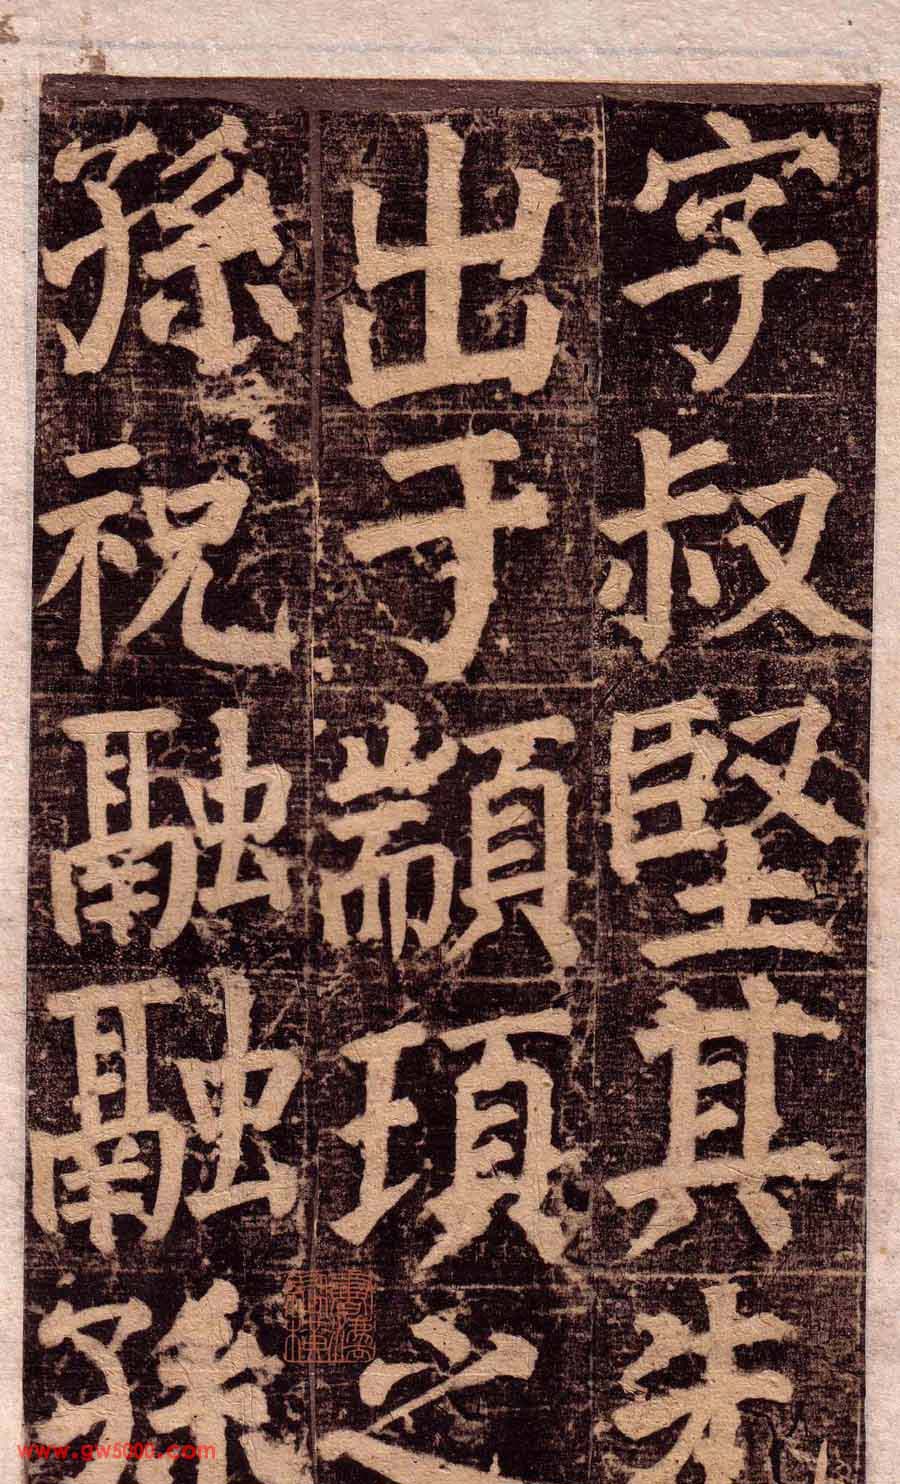 字叔堅其先
出于顓頊之
孫祝融融孫
www.gw5000.com